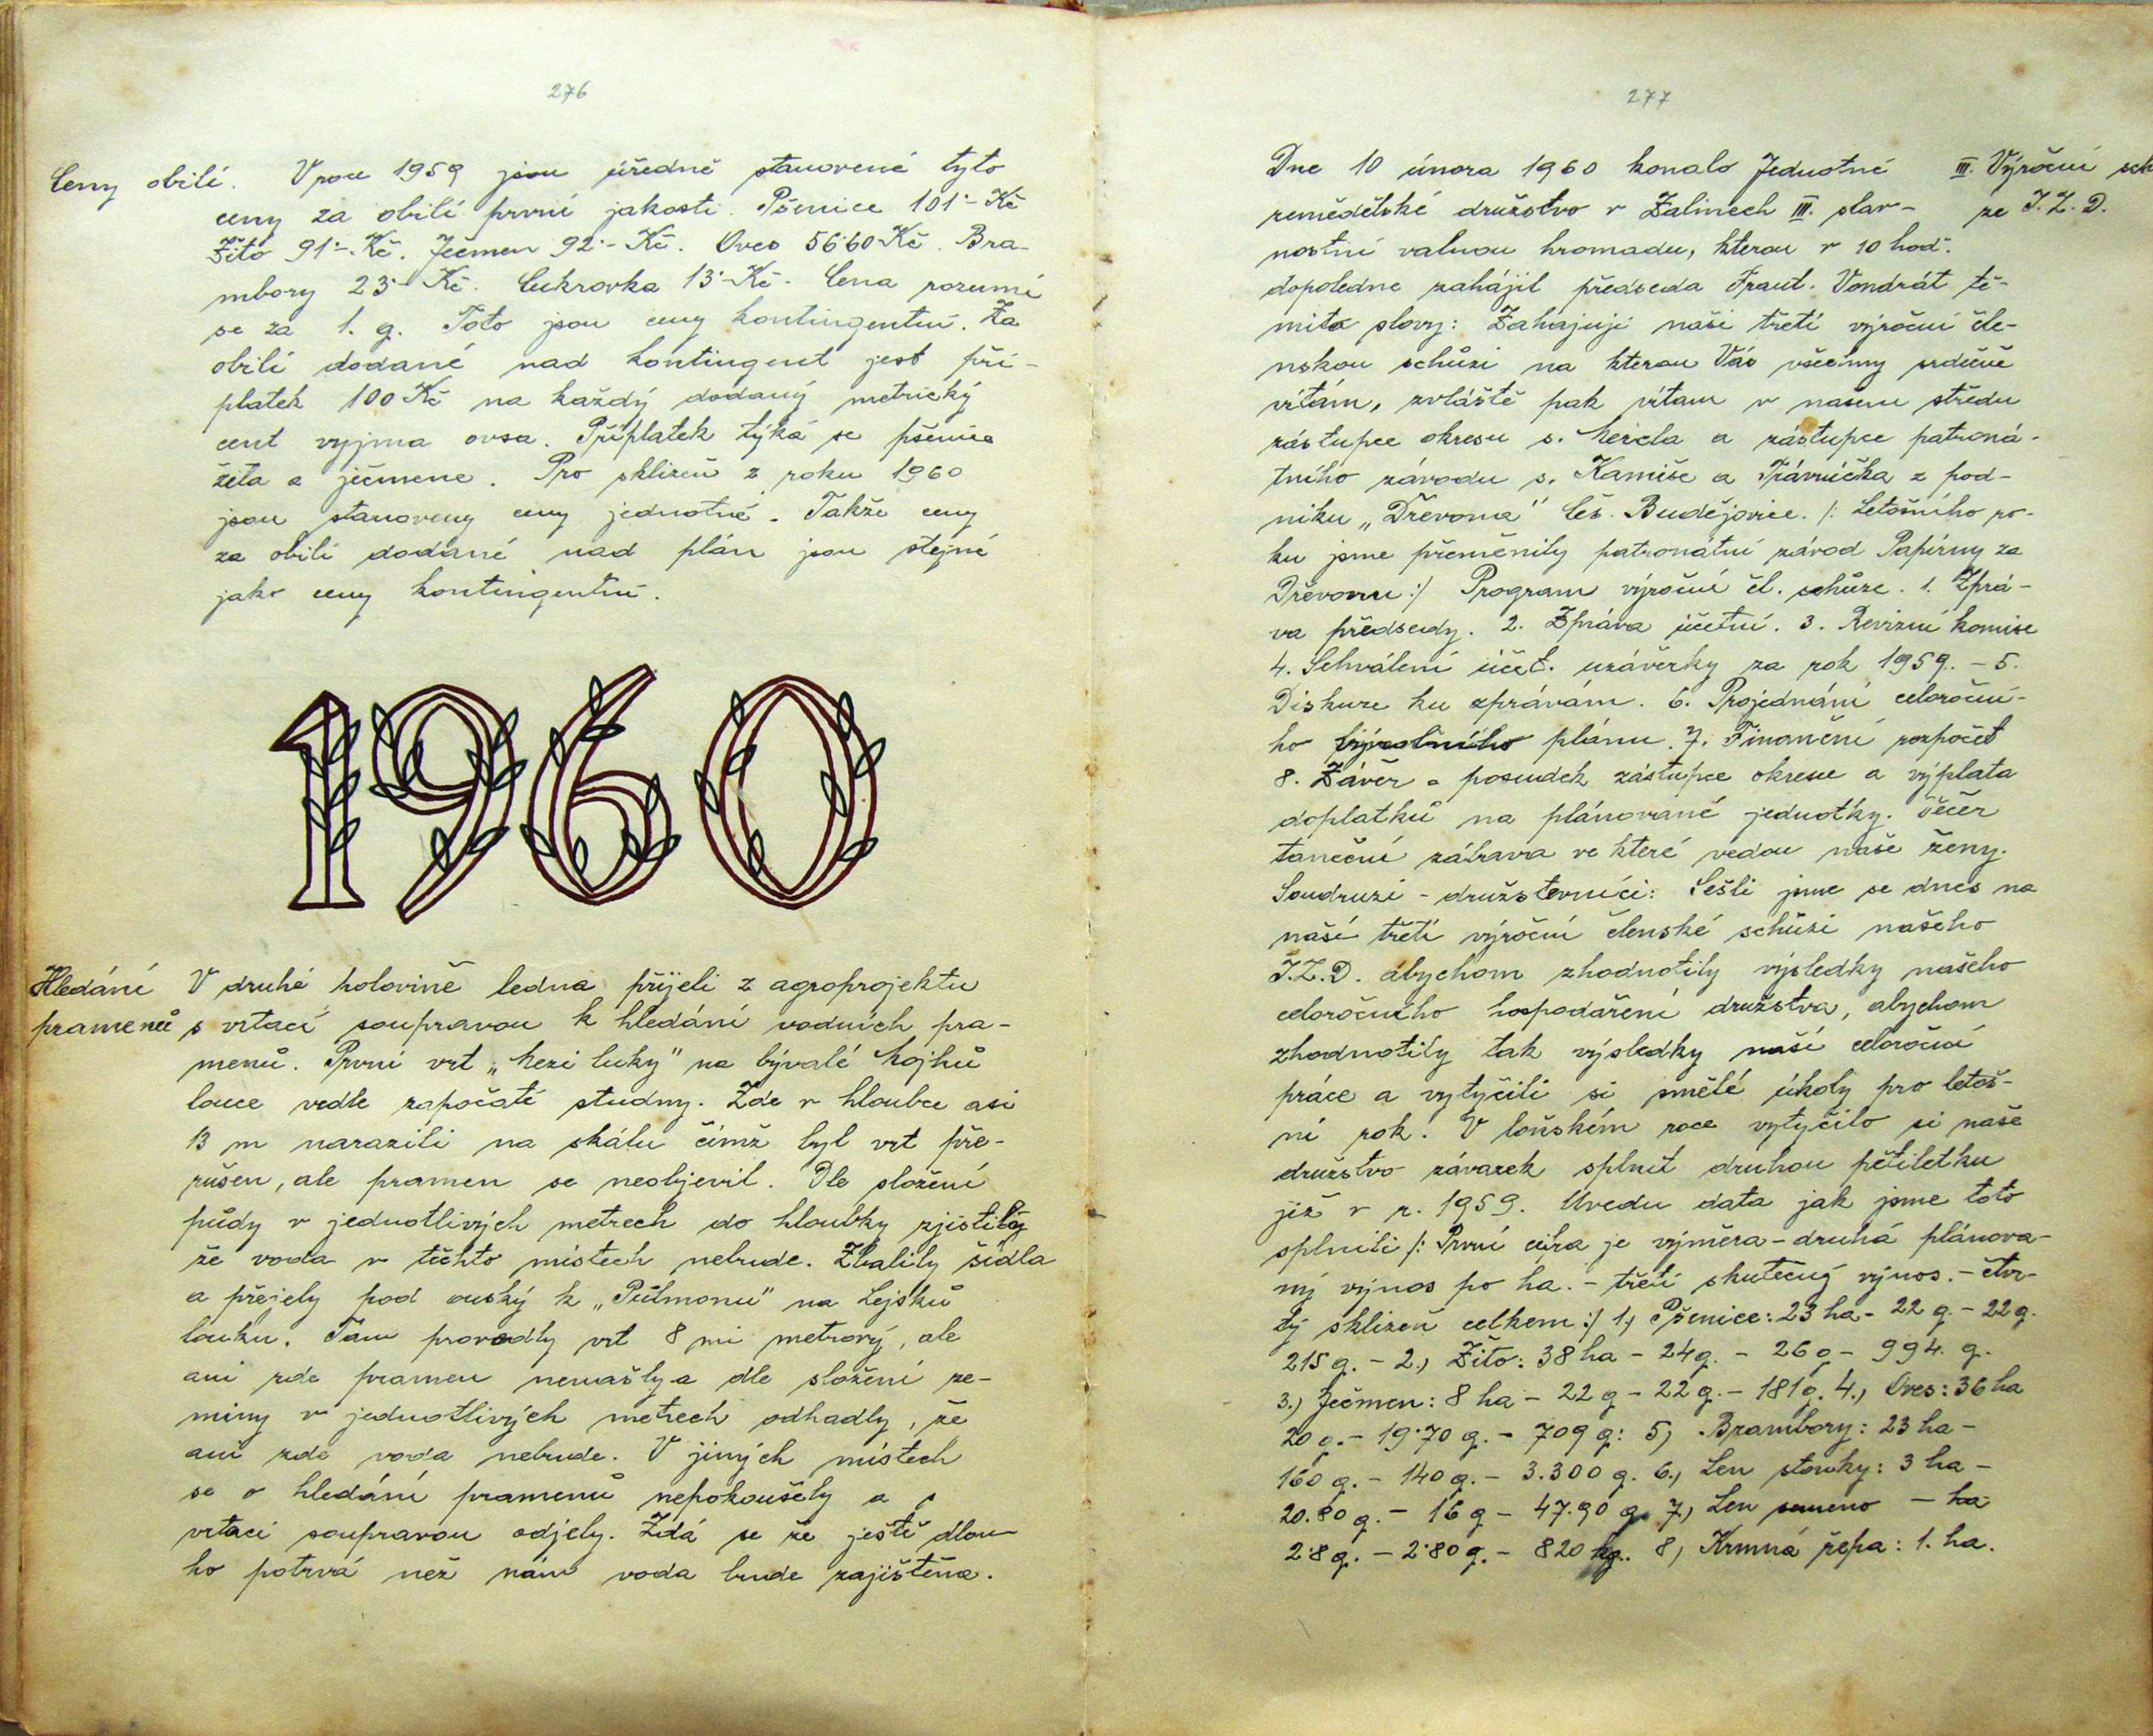 276
Ceny obilí. V roce 1959 jsou úředně stanovené tyto
ceny za obilí první jakosti. Pšenice 101·- Kč
Žito 91·-. Kč. Ječmen 92·- Kč. Oves 56·60 Kč. Bra-
mbory 23·- Kč. Cukrovka 13·- Kč. Cena rozumí
se za 1. q. Toto jsou ceny kontingentní. Za
obilí dodané nad kontingent jest pří-
platek 100 Kč na každý dodaný metrický
cent vyjma ovsa. Příplatek týká se pšenice
žita a ječmene. Pro sklizeň z roku 1960
jsou stanoveny ceny jednotné. Takže ceny
za obilí dodané nad plán jsou stejné
jako ceny kontingentní.
1960
Hledání V druhé polovině ledna přijeli z agroprojektu
pramenů s vrtací soupravou k hledání vodních pra-
menů. První vrt „Mezi luky" na bývalé Mojhů
louce vedle započaté studny. Zde v hloubce asi
13 m narazili na skálu čímž byl vrt pře-
rušen, ale pramen se neobjevil. Dle složení
půdy v jednotlivých metrech do hloubky zjistily
že voda v těchto místech nebude. Zbalily šídla
a přejely pod ouský k „Půlmonu" na Lejsků
louku. Tam provedly vrt 8 mi metrový, ale
ani zde pramen nenašly a dle složení ze-
miny v jednotlivých metrech odhadly, že
ani zde voda nebude. V jiných místech
se o hledání pramenů nepokoušely a s
vrtací soupravou odjely. Zdá se že ještě dlou-
ho potrvá než nám voda bude zajištěna.
277
Dne 10 února 1960 konalo Jednotné III. Výroční sch
zemědělské družstvo v Žalinech III. slav- ze J.Z.D.
nostní valnou hromadu, kterou v 10 hod.
dopoledne zahájil předseda Frant. Vondrát tě-
mito slovy: Zahajuji naši třetí výroční čle-
nskou schůzi na kterou Vás všechny srdečně
vítám, zvláště pak vítam v našem středu
zástupce okresu s. Meicla a zástupce patroná-
tního závodu s. Kamiše a Trávníčka z pod-
niku „Dřevona" Čes. Budějovice. /: Letošního ro-
ku jsme přeměnily patronátní závod Papírny za
Dřevonu :/ Program výroční čl. schůze. 1. Zprá-
va předsedy. 2. Zpráva účetní. 3. Revizní komise
4. Schválení účet. uzávěrky za rok 1959. - 5.
Diskuze ku zprávám. 6. Projednání celoroční-
ho výrobního plánu. 7. Finanční rozpočet
8. Závěr a posudek zástupce okresu a výplata
doplatků na plánované jednotky. Večer
taneční zábava ve které vedou naše ženy.
Soudruzi - družsterníci: Sešli jsme se dnes na
naší třetí výroční členské schůzi našeho
J.Z.D. abychom zhodnotily výsledky našeho
celoročního hospodaření družstva, abychom
zhodnotily tak výsledky naší celoroční
práce a vytyčili si smělé úkoly pro letoš-
ní rok. V loňském roce vytyčilo si naše
družstvo závazek splnit druhou pětiletku
již v r. 1959. Uvedu data jak jsme toto
splnili /: První cifra je výměra - druhá plánova-
ný výnos po ha. - třetí skutečný výnos. - čtvr-
tý sklizeň celkem :/ 1, Pšenice: 23 ha - 22 q. - 22 q.
215 q. - 2., Žito: 38 ha - 24 q. - 26 q - 994. q.
3., Ječmen: 8 ha - 22 q - 22 q. - 181 q. 4., Oves: 36 ha
20 q. - 19·70 q. - 709 q: 5, Brambory: 23 ha -
160 q. - 140 q. - 3.300 q. 6., Len stonky: 3 ha -
20.80 q. - 16 q - 47.90 q. 7, Len semeno - ha
2·8 q. - 2·80 q. - 820 kg. 8, Krmná řepa: 1. ha.